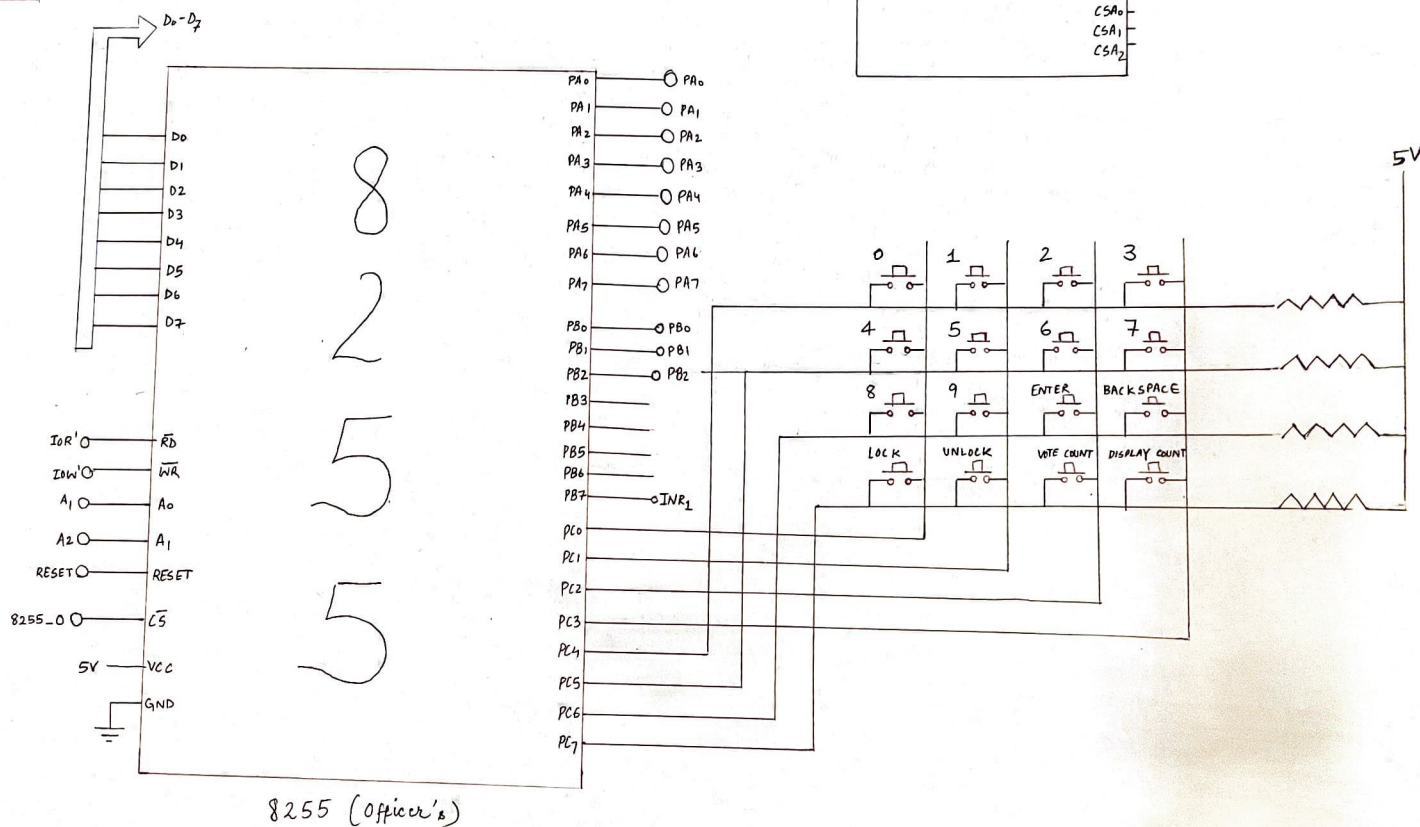 D0-D7
CSA0
CSA1
CSA2
D0
D1
D2
D3
D4
D5
D6
D7
IOR' RD
IOW' WR
A1 A0
A2 A1
RESET RESET
8255_0 CS
5V VCC
GND
8
2
5
5
PA0 PA0
PA1 PA1
PA2 PA2
PA3 PA3
PA4 PA4
PA5 PA5
PA6 PA6
PA7 PA7
PB0 PB0
PB1 PB1
PB2 PB2
PB3
PB4
PB5
PB6
PB7 INR1
PC0
PC1
PC2
PC3
PC4
PC5
PC6
PC7
5V
0 1 2 3
4 5 6 7
8 9 ENTER BACKSPACE
LOCK UNLOCK VOTE COUNT DISPLAY COUNT
8255 (Officer's)